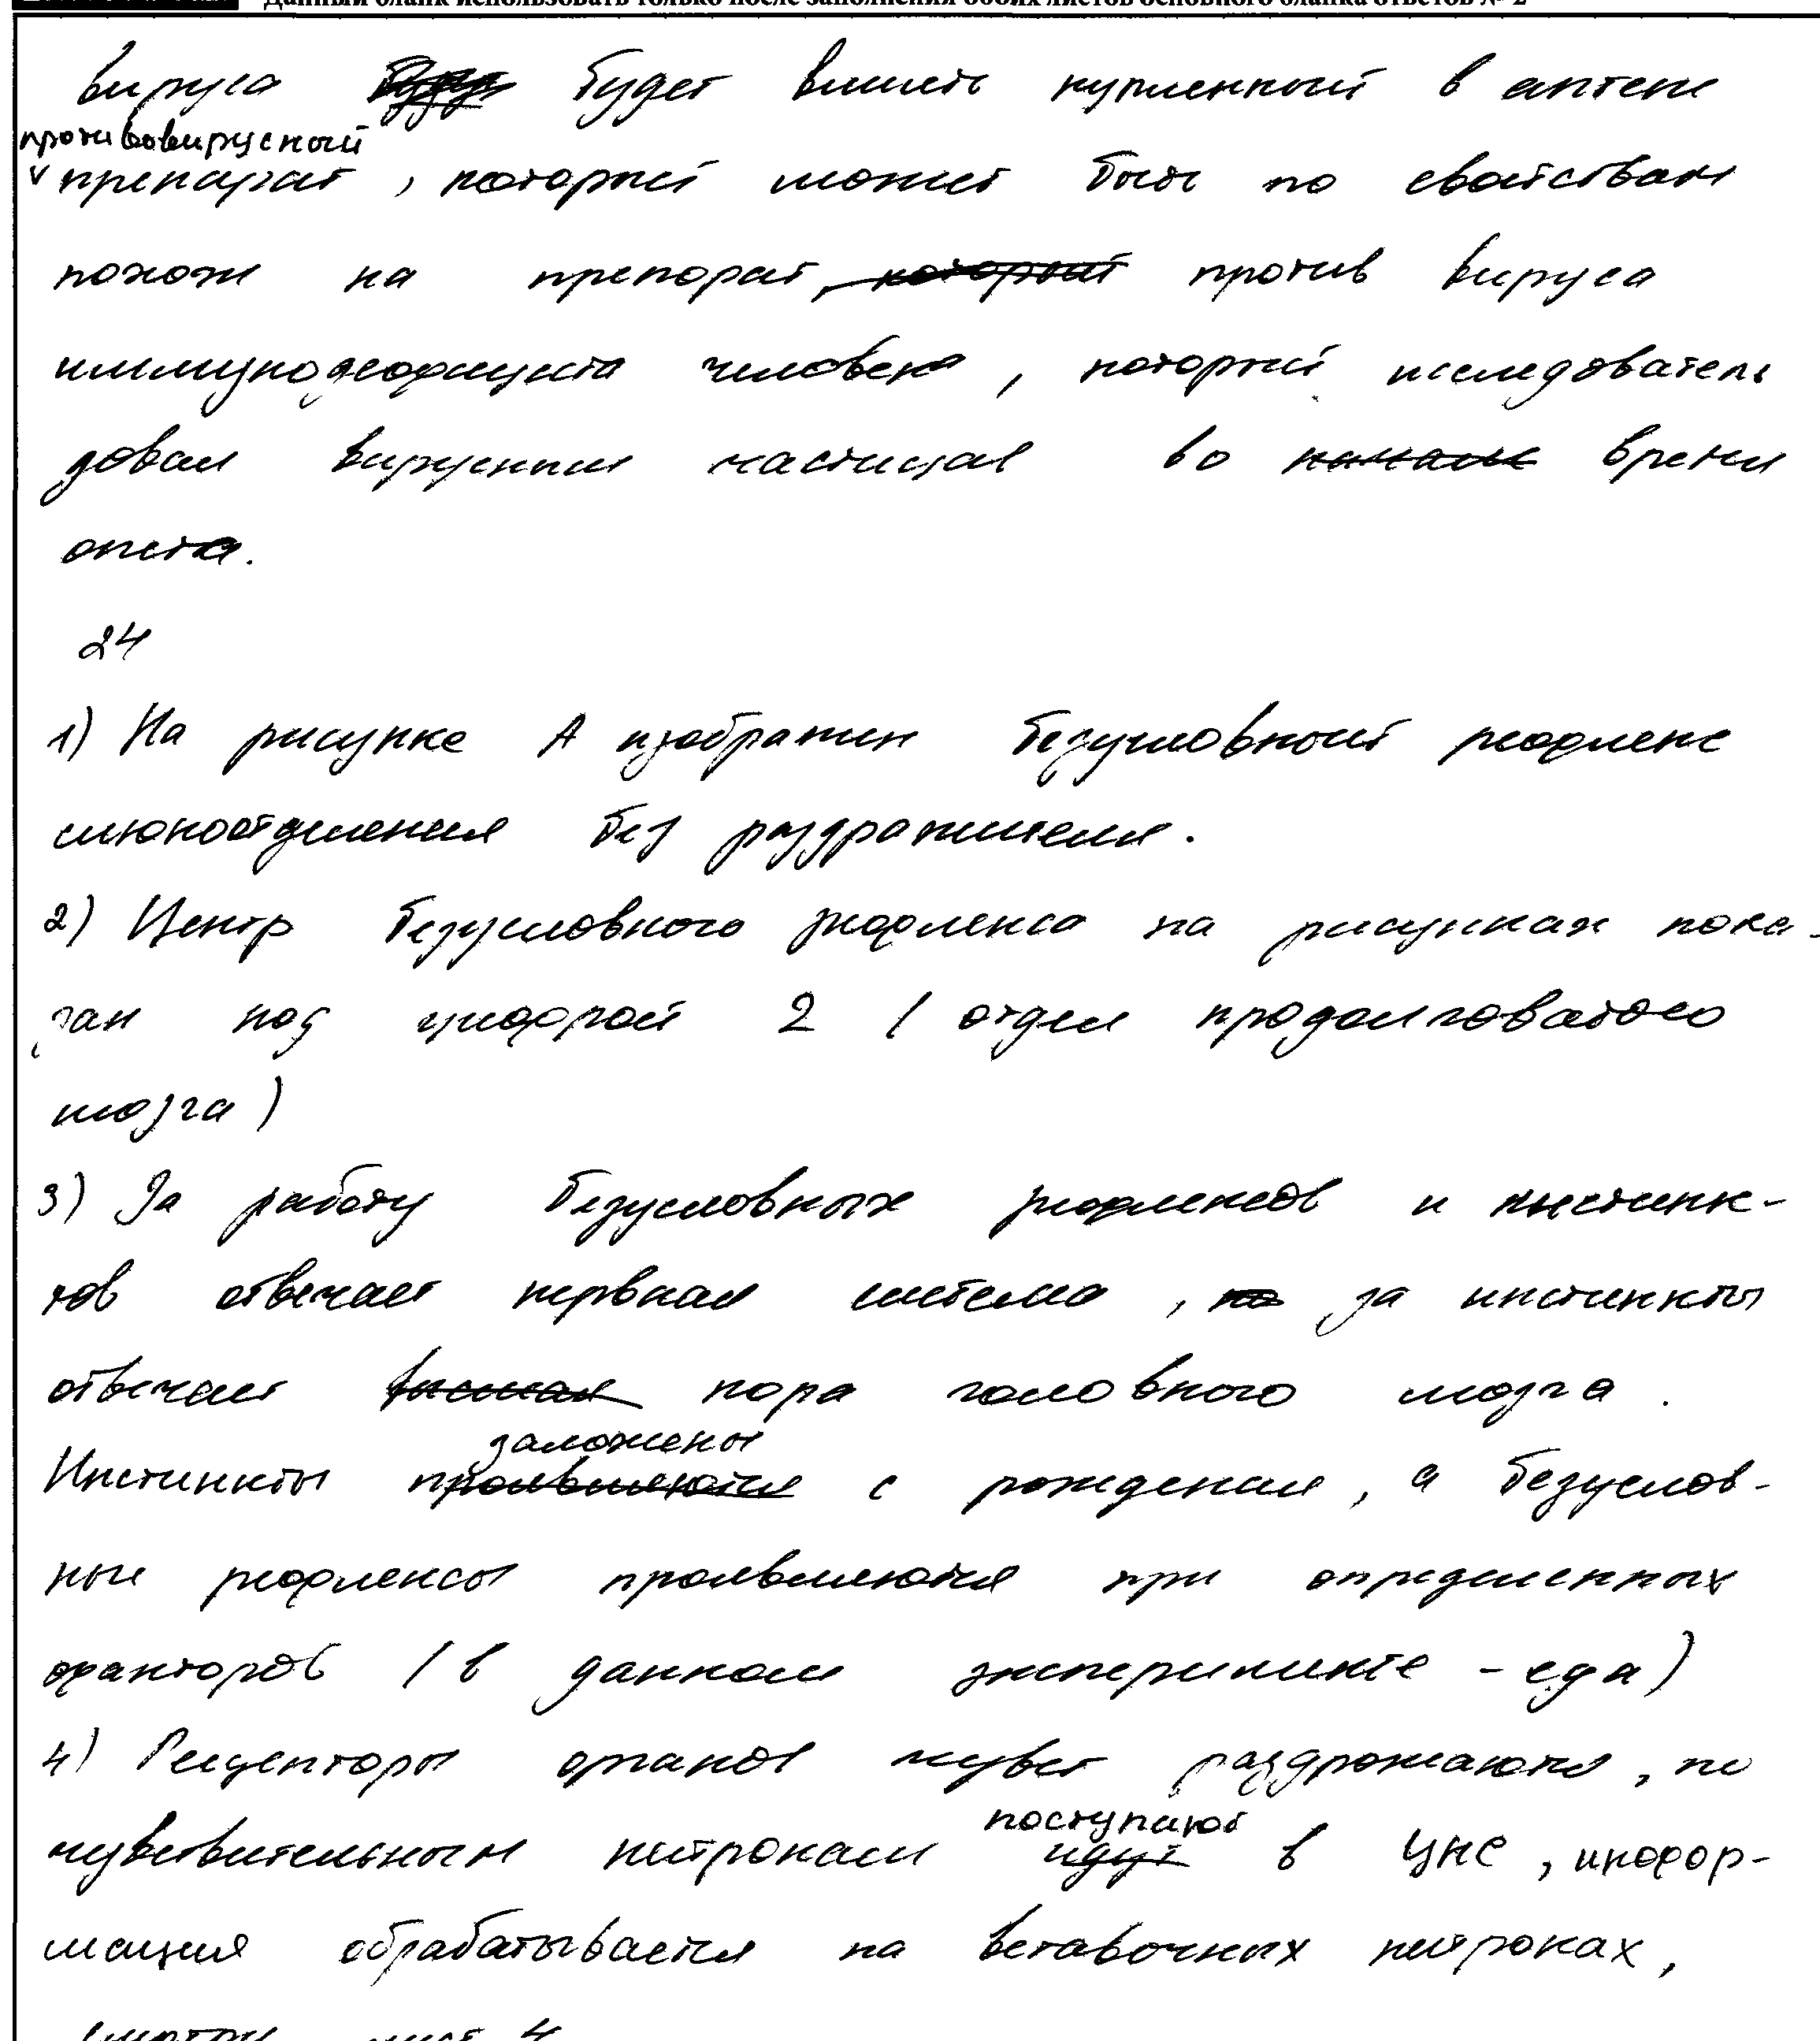 Данный бланк использовать только после заполнения обоих листов основного бланка ответов № 2
вируса будет влиять купленный в аптеке
противовирусный
препарат, который может быть по свойствам
похож на препарат, который против вируса
иммунодефицита человека, который исследователь
довал вирусным частицам во время
опыта.
24
1) На рисунке А изображен безусловный рефлекс
слюноотделения без раздражителя.
2) Центр безусловного рефлекса на рисунках пока-
зан под цифрой 2 (отдел продолговатого
мозга)
3) За работу безусловных рефлексов и инстинк-
тов отвечает нервная система, но за инстинкты
отвечает кора головного мозга.
заложены
Инстинкты проявляются с рождения, а безуслов-
ные рефлексы проявляются при определенных
факторов (в данном эксперименте - еда)
4) Рецепторы органов чувст раздражаются, по
поступают
чувствительным нейронам идут в ЦНС, инфор-
мация обрабатывается на вставочных нейронах,
смотри лист 4